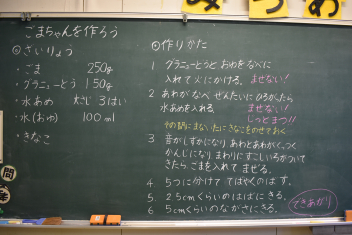 ごまちゃんを作ろう
◎ざいりょう
・ごま 250g
・グラニューとう 150g
・水あめ 大さじ3ばい
・水(おゆ) 100ml
・きなこ
◎作りかた
1 グラニューとうと おゆをなべに
入れて火にかける。まぜない!
2 あわがなべ ぜんたいに ひろがったら
水あめを入れる。まぜない!
しっとまつ!!
その間に まないたに きなこをのせておく
3 音がしずかになり あわとあわがくっつく
かんじになり まわりにすこしいろがついて
きたら ごまを入れて まぜる。
4 5つに分けて てばやくのばす。
5 2.5cmくらいのはばにきる。
6 5cmくらいのながさにきる。
できあがり
問